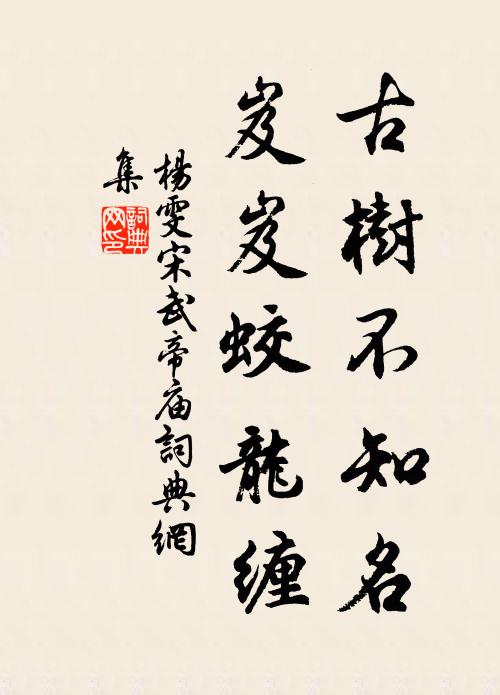 古樹不知名
岌岌蛟龍缠
楊雯宋武帝庙詞典網
集
詞典
网印